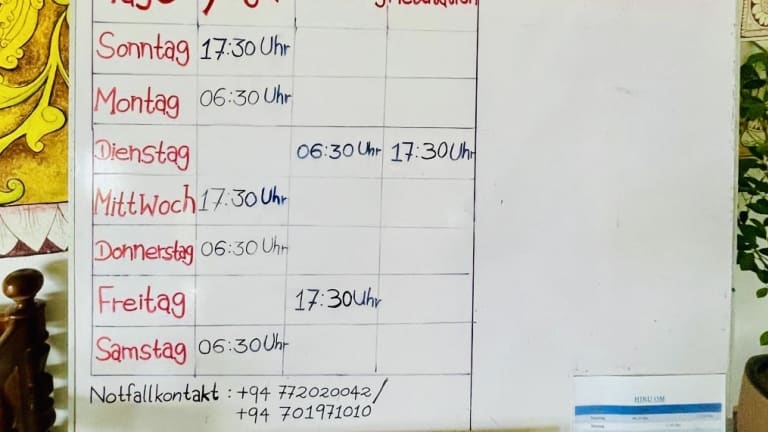 Sonntag 17:30 Uhr
Montag 06:30 Uhr
Dienstag 06:30 Uhr 17:30 Uhr
Mittwoch 17:30 Uhr
Donnerstag 06:30 Uhr
Freitag 17:30 Uhr
Samstag 06:30 Uhr
Notfallkontakt : +94 772020042/
+94 701971010